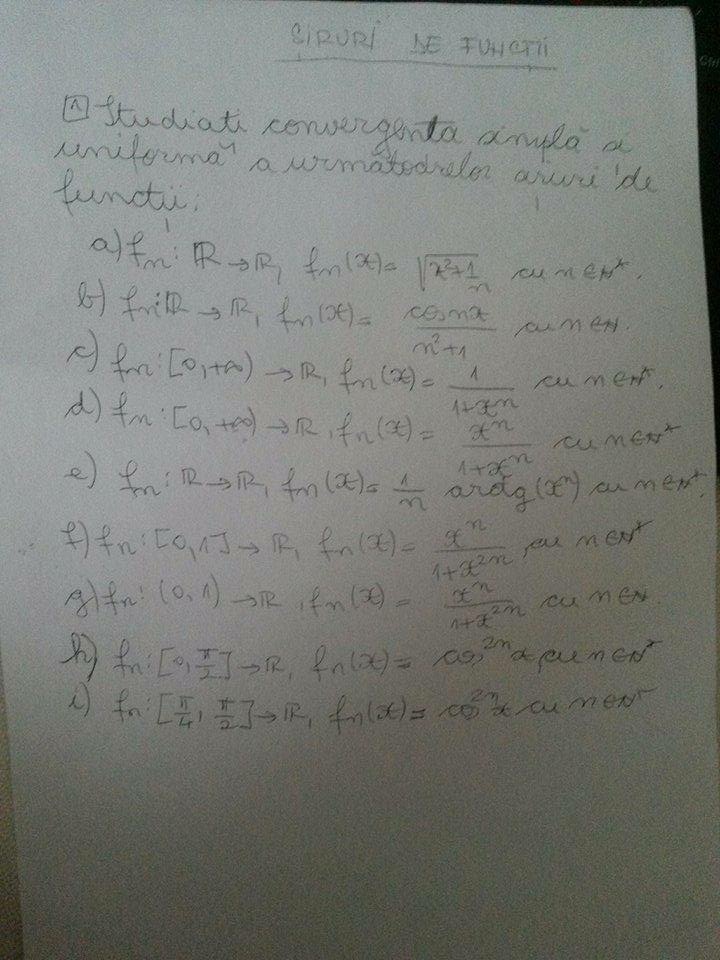 SIRURI DE FUNCTII
1 Studiati convergenta simplă si
uniformă a următoarelor siruri de
functii:
a) fn: ℝ → ℝ, fn(x) = √(x²+1/n) cu n∈ℕ*.
b) fn: ℝ → ℝ, fn(x) = cos nx / (n²+1) cu n∈ℕ.
c) fn: [0,+∞) → ℝ, fn(x) = 1/(1+xⁿ) cu n∈ℕ*.
d) fn: [0,+∞) → ℝ, fn(x) = xⁿ/(1+xⁿ) cu n∈ℕ*
e) fn: ℝ → ℝ, fn(x) = 1/n arctg(xⁿ) cu n∈ℕ*.
f) fn: [0,1] → ℝ, fn(x) = xⁿ/(1+x²ⁿ), cu n∈ℕ*
g) fn: (0,1) → ℝ, fn(x) = xⁿ/(1+x²ⁿ) cu n∈ℕ.
h) fn: [0, π/2] → ℝ, fn(x) = cos²ⁿx, cu n∈ℕ*
i) fn: [π/4, π/2] → ℝ, fn(x) = cos²ⁿx cu n∈ℕ*